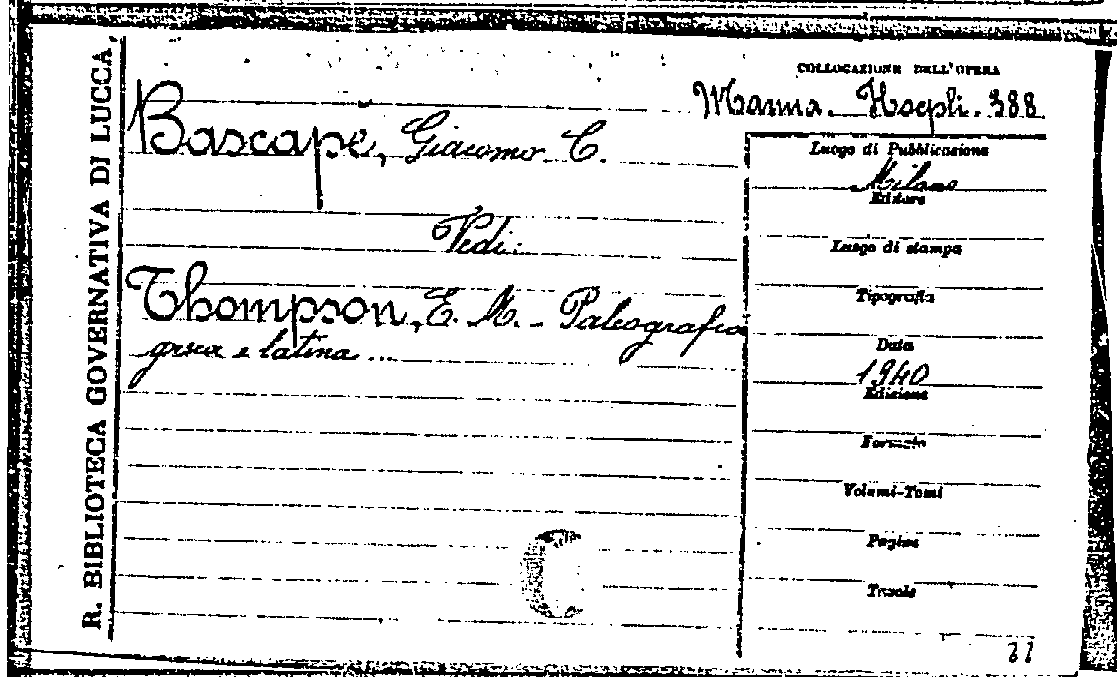 R. BIBLIOTECA GOVERNATIVA DI LUCCA
COLLOCAZIONE DELL'OPERA
Manna. Hoepli. 388
Bascapè, Giacomo C.
Vedi:
Thompson, E. M. - Paleografia
greca e latina ...
Luogo di Pubblicazione
Milano
Editore
Luogo di stampa
Tipografia
Data
1940
Edizione
Formato
Volumi-Tomi
Pagine
Tavole